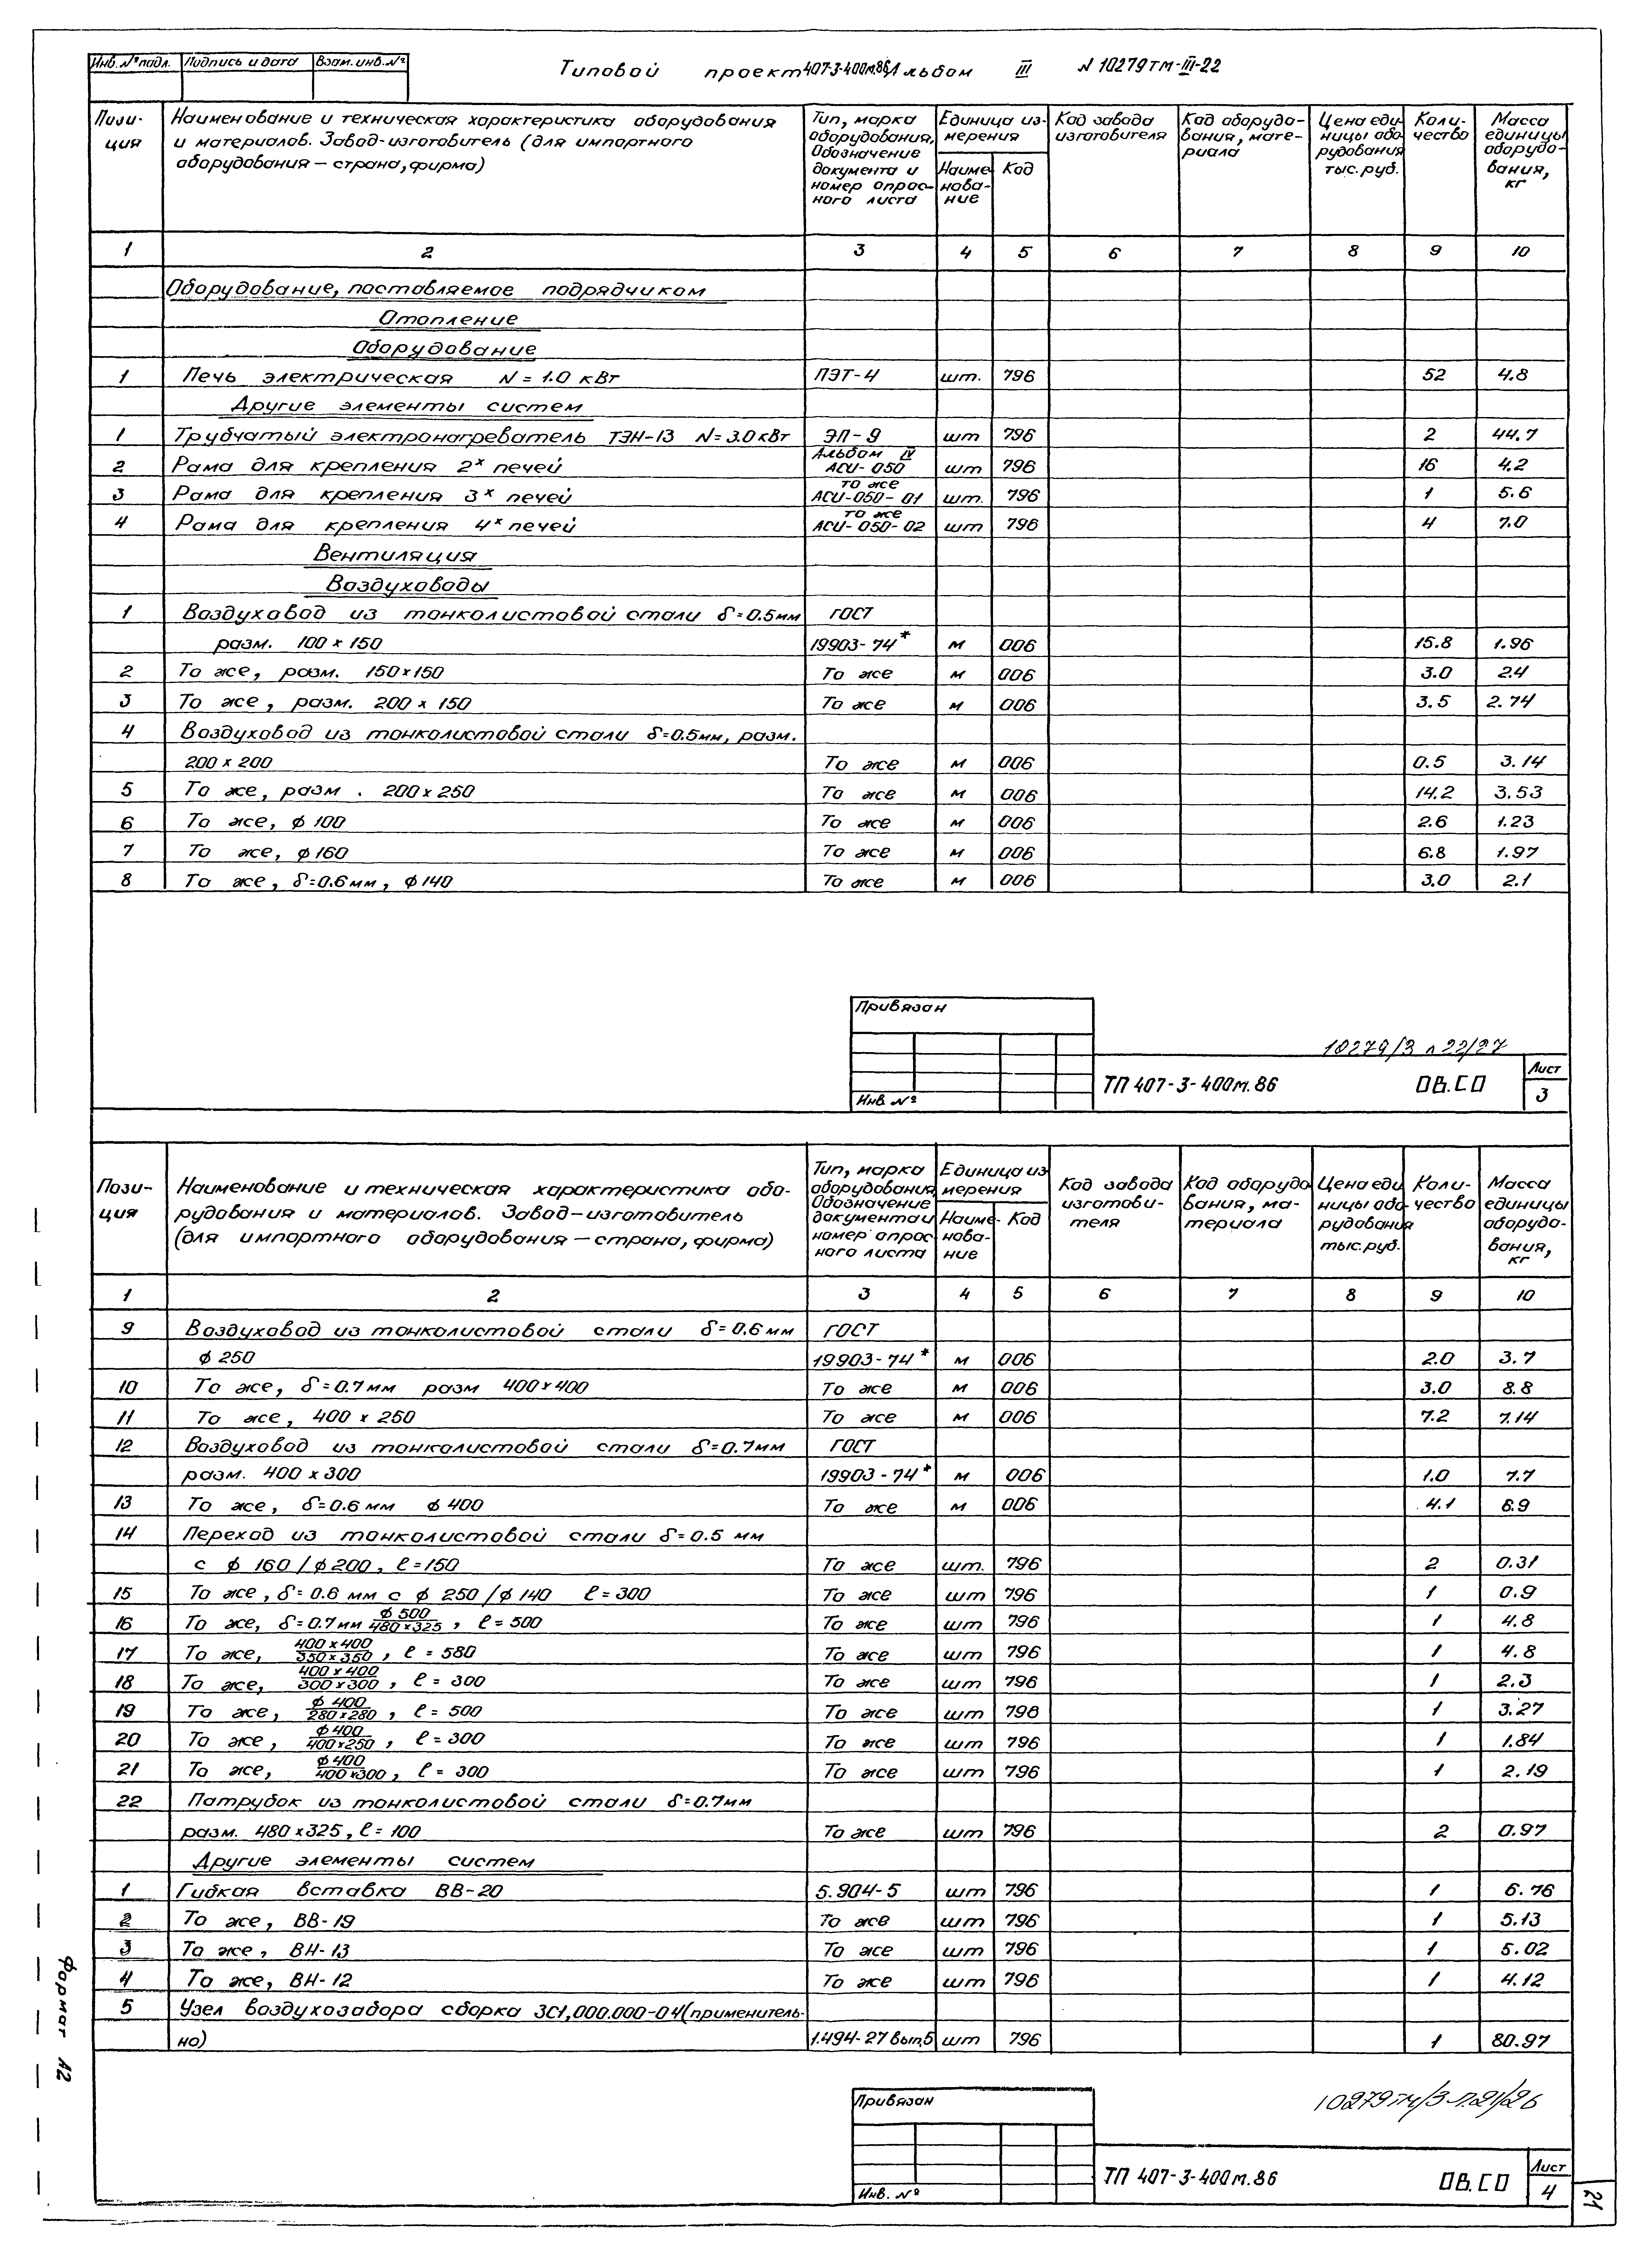 Инв. № подл. Подпись и дата Взам. инв. №
Типовой проект 407-3-400м.86 Альбом III N 10279тм-III-22
Пози-ция Наименование и техническая характеристика оборудования и материалов. Завод-изготовитель (для импортного оборудования – страна, фирма) Тип, марка оборудования, Обозначение документа и номер опрос-ного листа Единица из-мерения Наиме-нова-ние Код Код завода изготовителя Код оборудо-вания, мате-риала Цена еди-ницы обо-рудования тыс. руб. Коли-чество Масса единицы оборудо-вания, кг
1 2 3 4 5 6 7 8 9 10
Оборудование, поставляемое подрядчиком
Отопление
Оборудование
1 Печь электрическая N = 1.0 кВт ПЭТ-4 шт. 796 52 4.8
Другие элементы систем
1 Трубчатый электронагреватель ТЭН-13 N=3.0 кВт ЭП-9 шт 796 2 44.7
2 Рама для крепления 2х печей Альбом IV АСИ-050 шт 796 16 4.2
3 Рама для крепления 3х печей то же АСИ-050-01 шт. 796 1 5.6
4 Рама для крепления 4х печей то же АСИ-050-02 шт 796 4 7.0
Вентиляция
Воздуховоды
1 Воздуховод из тонколистовой стали δ=0.5мм ГОСТ
разм. 100 х 150 19903-74* м 006 15.8 1.96
2 То же, разм. 150х150 То же м 006 3.0 2.4
3 То же, разм. 200 х 150 То же м 006 3.5 2.74
4 Воздуховод из тонколистовой стали δ=0.5мм, разм.
200 х 200 То же м 006 0.5 3.14
5 То же, разм. 200х250 То же м 006 14.2 3.53
6 То же, ϕ 100 То же м 006 2.6 1.23
7 То же, ϕ 160 То же м 006 6.8 1.97
8 То же, δ=0.6мм, ϕ 140 То же м 006 3.0 2.1
Привязан
Инв. №
10279/3 л 22/27
ТП 407-3-400м.86 ОВ.СО Лист 3
Пози-ция Наименование и техническая характеристика обо-рудования и материалов. Завод-изготовитель (для импортного оборудования – страна, фирма) Тип, марка оборудования, Обозначение документа и номер опрос-ного листа Единица из-мерения Наиме-нова-ние Код Код завода изготови-теля Код оборудо-вания, ма-териала Цена еди-ницы обо-рудования тыс. руб. Коли-чество Масса единицы оборудо-вания, кг
1 2 3 4 5 6 7 8 9 10
9 Воздуховод из тонколистовой стали δ=0.6 мм ГОСТ
ϕ 250 19903-74* м 006 2.0 3.7
10 То же, δ=0.7мм разм 400х400 То же м 006 3.0 8.8
11 То же, 400 х 250 То же м 006 7.2 7.14
12 Воздуховод из тонколистовой стали δ=0.7мм ГОСТ
разм. 400 х 300 19903-74* м 006 1.0 7.7
13 То же, δ=0.6 мм ϕ 400 То же м 006 4.1 6.9
14 Переход из тонколистовой стали δ=0.5 мм
с ϕ 160 / ϕ 200, ℓ=150 То же шт. 796 2 0.31
15 То же, δ=0.6 мм с ϕ 250 / ϕ 140 ℓ=300 То же шт 796 1 0.9
16 То же, δ=0.7мм ϕ 500/480х325, ℓ=500 То же шт 796 1 4.8
17 То же, 400 х 400/350 х 350, ℓ=580 То же шт 796 1 4.8
18 То же, 400 х 400/300 х 300, ℓ=300 То же шт 796 1 2.3
19 То же, ϕ 400/280х280, ℓ=500 То же шт 796 1 3.27
20 То же, ϕ 400/400х250, ℓ=300 То же шт 796 1 1.84
21 То же, ϕ 400/400х300, ℓ=300 То же шт 796 1 2.19
22 Патрубок из тонколистовой стали δ=0.7мм
разм. 480х325, ℓ=100 То же шт 796 2 0.97
Другие элементы систем
1 Гибкая вставка ВВ-20 5.904-5 шт 796 1 6.76
2 То же, ВВ-19 То же шт 796 1 5.13
3 То же, ВН-13 То же шт 796 1 5.02
4 То же, ВН-12 То же шт 796 1 4.12
5 Узел воздухозабора сборка 3С1,000.000-04(применитель-
но) 1.494-27 вып.5 шт 796 1 80.97
Привязан
Инв. №
10279тм/3 л.21/26
ТП 407-3-400м.86 ОВ.СО Лист 4
Формат А2
21